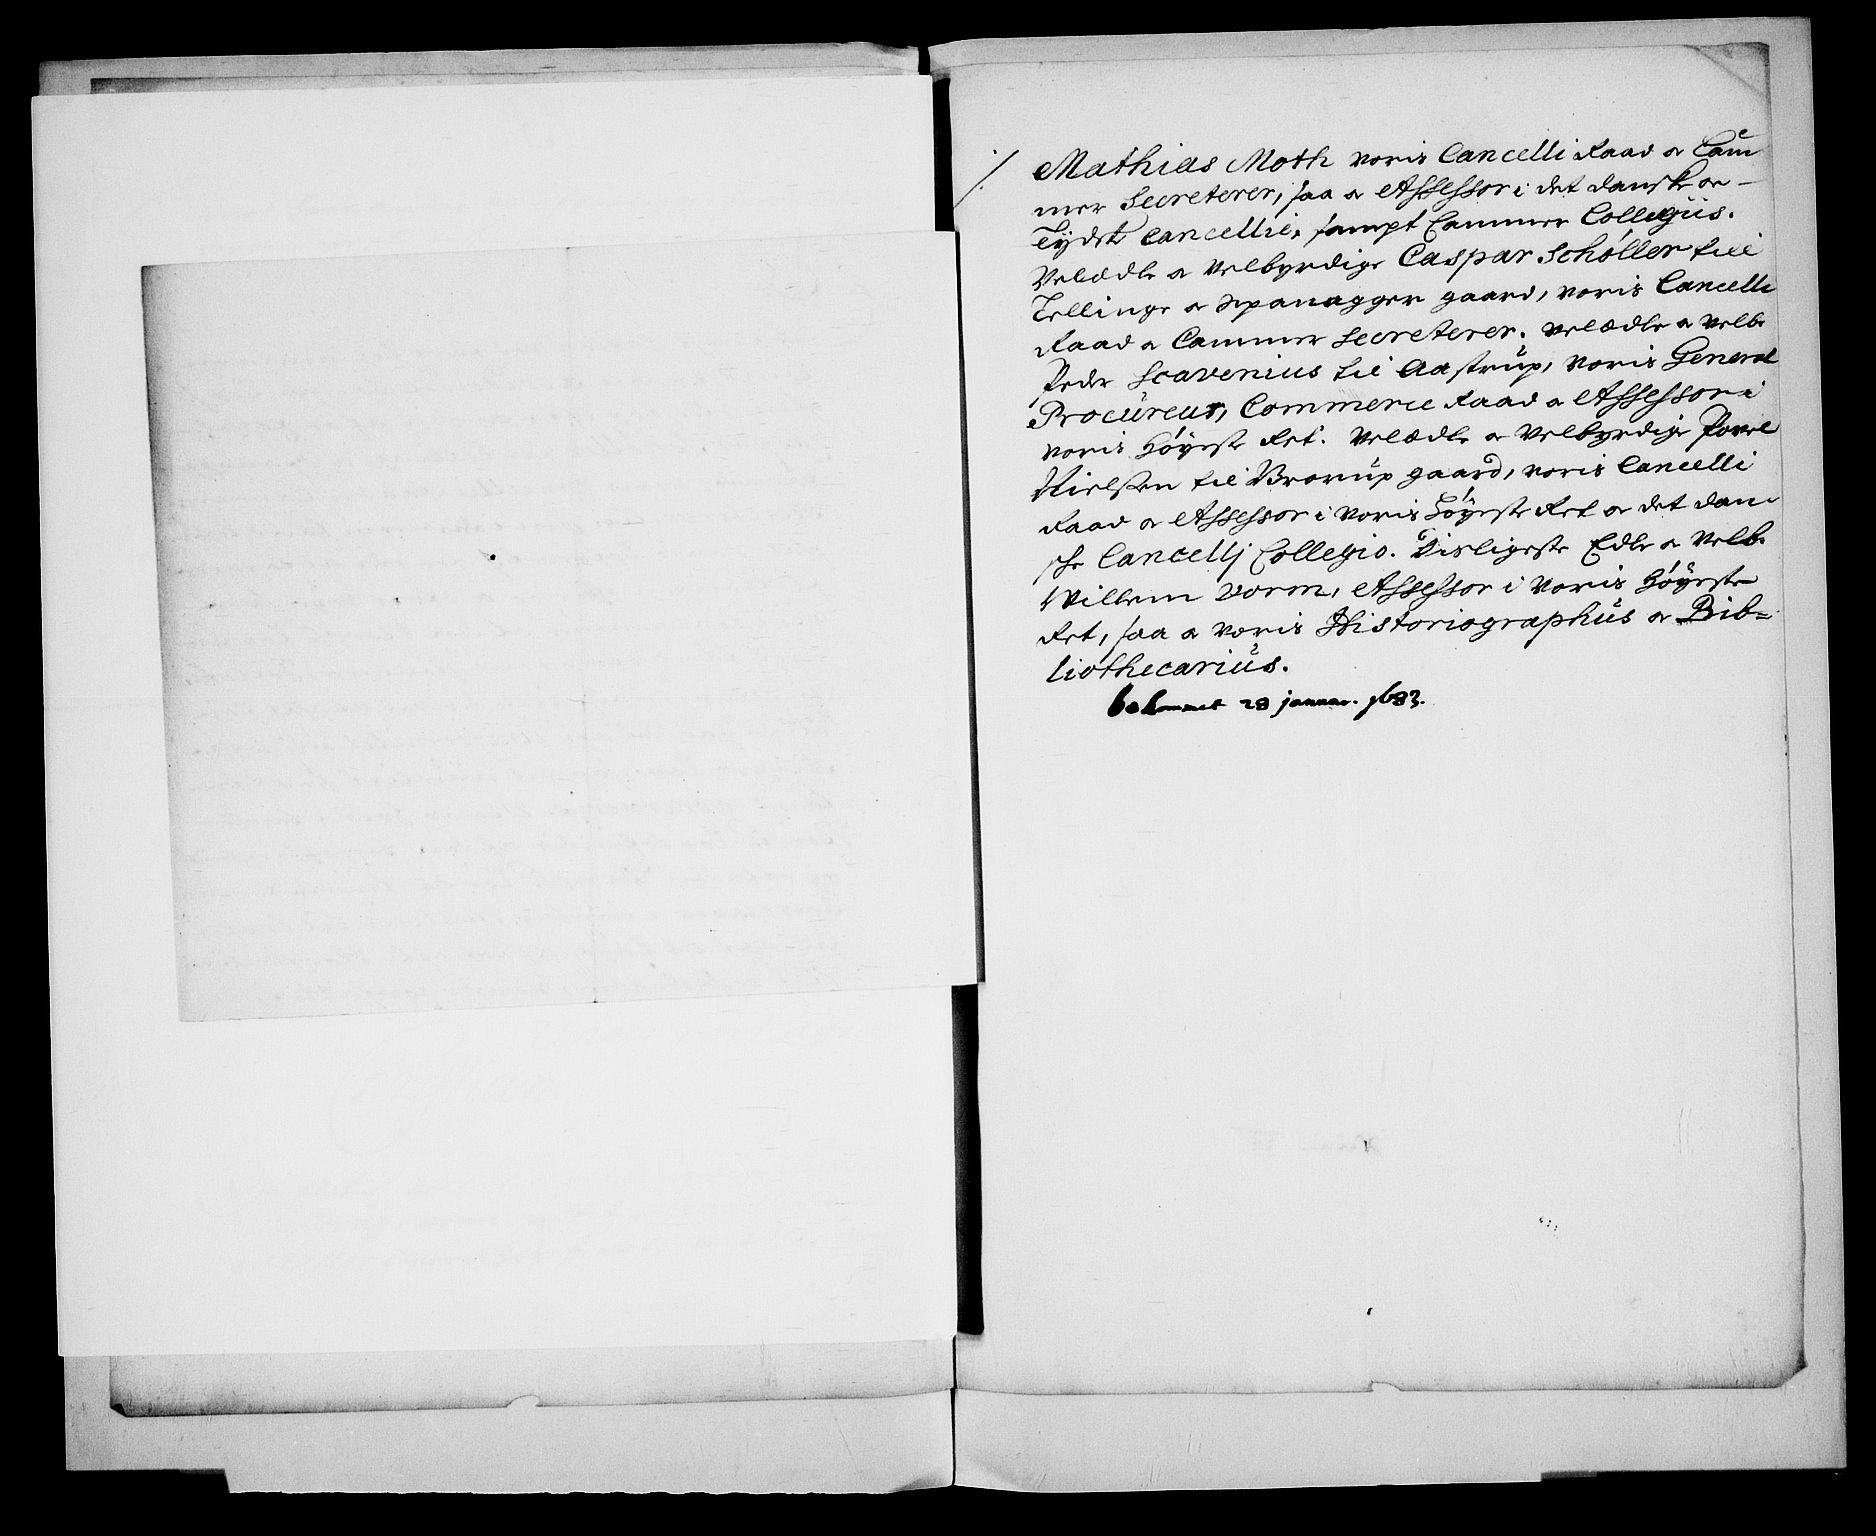 Mathias Moth voris Cancelli Raad oc Cam
mer Secreterer, saa oc Assessor i det danske oc
Tydske Cancellie, sampt Cammer Collegiis.
Velædle oc Velbyrdige Caspar Schøller till
Tellinge oc Spanagger gaard, voris Cancelli
Raad oc Cammer Secreterer. Velædle oc Velb.
Peder Scavenius til Aastrup, voris General
Procureur, Commerce Raad oc Assessor i
voris Høyeste Ret. Velædle oc Velbyrdige Povel
Nielsen til Brorup gaard, voris Cancelli
Raad oc Assessor i voris Høyeste Ret oc det dan
ske Cancellj Collegio. Disligeste Edle oc Velb.
Willem Worm, Assessor i Voris Høyeste
Ret, saa oc voris Historiographus oc Bib-
liothecarius.
bekommet 28 januar. 1683.